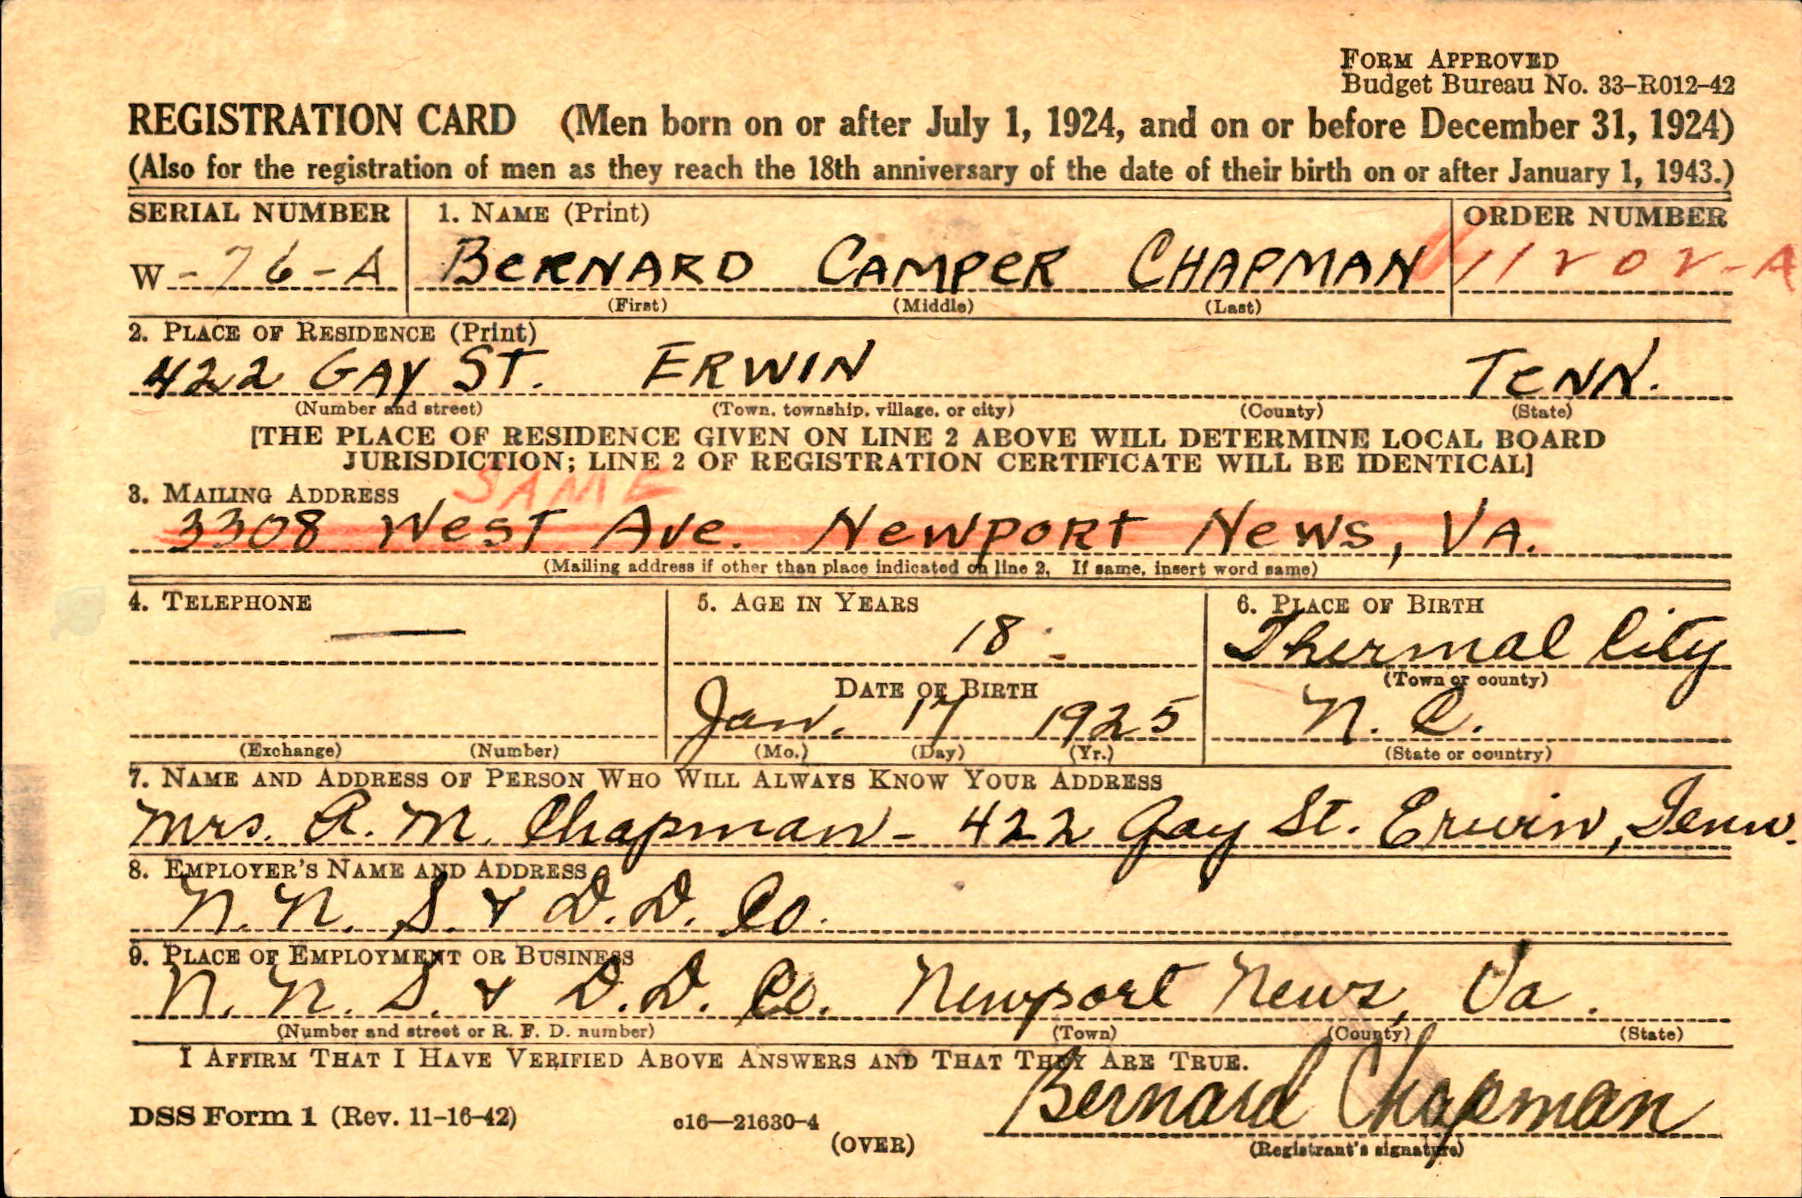 FORM APPROVED
Budget Bureau No. 33-R012-42
REGISTRATION CARD (Men born on or after July 1, 1924, and on or before December 31, 1924)
(Also for the registration of men as they reach the 18th anniversary of the date of their birth on or after January 1, 1943.)
SERIAL NUMBER 1. NAME (Print) ORDER NUMBER
W -76-A BERNARD CAMPER CHAPMAN 11202-A
(First) (Middle) (Last)
2. PLACE OF RESIDENCE (Print)
422 GAY ST. ERWIN TENN.
(Number and street) (Town, township, village, or city) (County) (State)
[THE PLACE OF RESIDENCE GIVEN ON LINE 2 ABOVE WILL DETERMINE LOCAL BOARD
JURISDICTION; LINE 2 OF REGISTRATION CERTIFICATE WILL BE IDENTICAL]
3. MAILING ADDRESS SAME
3308 West Ave. Newport News, VA.
(Mailing address if other than place indicated on line 2. If same, insert word same)
4. TELEPHONE 5. AGE IN YEARS 6. PLACE OF BIRTH
— 18 Thermal City
(Town or county)
DATE OF BIRTH
Jan. 17 1925 N. C.
(Exchange) (Number) (Mo.) (Day) (Yr.) (State or country)
7. NAME AND ADDRESS OF PERSON WHO WILL ALWAYS KNOW YOUR ADDRESS
Mrs. R. M. Chapman - 422 Gay St. Erwin, Tenn.
8. EMPLOYER'S NAME AND ADDRESS
N. N. S. & D. D. Co.
9. PLACE OF EMPLOYMENT OR BUSINESS
N. N. S. & D. D. Co. Newport News, Va.
(Number and street or R. F. D. number) (Town) (County) (State)
I AFFIRM THAT I HAVE VERIFIED ABOVE ANSWERS AND THAT THEY ARE TRUE.
Bernard Chapman
DSS Form 1 (Rev. 11-16-42) c16—21630-4
(OVER) (Registrant's signature)